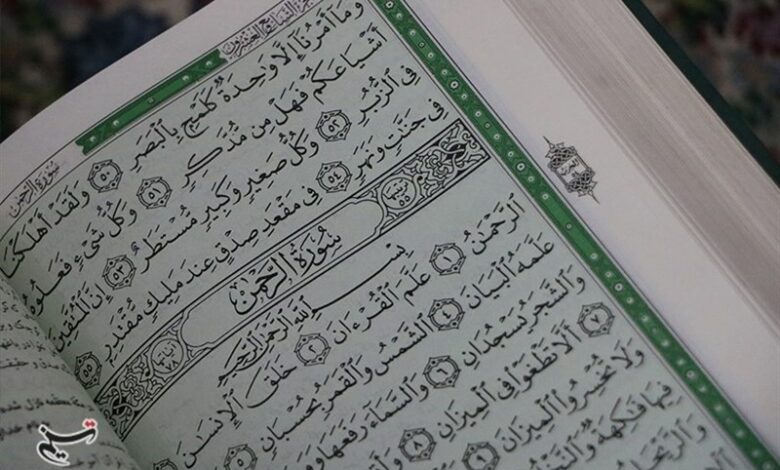 الجزء السابع والعشرون
سورة الرحمن
وَمَآ أَمْرُنَآ إِلَّا وَٰحِدَةٌ كَلَمْحٍۭ بِٱلْبَصَرِ ٥٠ وَلَقَدْ أَهْلَكْنَآ
أَشْيَاعَكُمْ فَهَلْ مِن مُّدَّكِرٍ ٥١ وَكُلُّ شَىْءٍ فَعَلُوهُ
فِى ٱلزُّبُرِ ٥٢ وَكُلُّ صَغِيرٍ وَكَبِيرٍ مُّسْتَطَرٌ ٥٣ إِنَّ ٱلْمُتَّقِينَ
فِى جَنَّٰتٍ وَنَهَرٍ ٥٤ فِى مَقْعَدِ صِدْقٍ عِندَ مَلِيكٍ مُّقْتَدِرٍۭ ٥٥
سُورَةُ الرَّحْمٰنِ
بِسْمِ ٱللَّهِ ٱلرَّحْمَٰنِ ٱلرَّحِيمِ
ٱلرَّحْمَٰنُ ١ عَلَّمَ ٱلْقُرْءَانَ ٢ خَلَقَ ٱلْإِنسَٰنَ
عَلَّمَهُ ٱلْبَيَانَ ٤ ٱلشَّمْسُ وَٱلْقَمَرُ بِحُسْبَانٍ ٥
وَٱلشَّجَرُ يَسْجُدَانِ ٦ وَٱلسَّمَآءَ رَفَعَهَا
٧ أَلَّا تَطْغَوْا۟ فِى ٱلْمِيزَانِ ٨
وَلَا تُخْسِرُوا۟ ٱلْمِيزَانَ ٩
فِيهَا فَٰكِهَةٌ
وَٱلرَّيْحَانُ
تسنیم